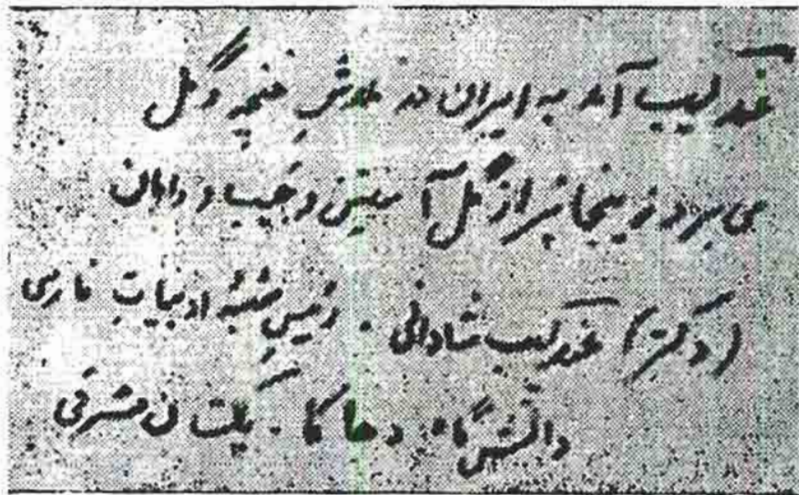 عندلیب آمد به ایران در تلاش غنچه و گل
می برد زینجا پر از گل آستین و جیب و دامان
(دکتر) عندلیب شادانی . رئیس شعبهٔ ادبیات فارسی
دانشگاه دهاکا . پاکستان مشرقی